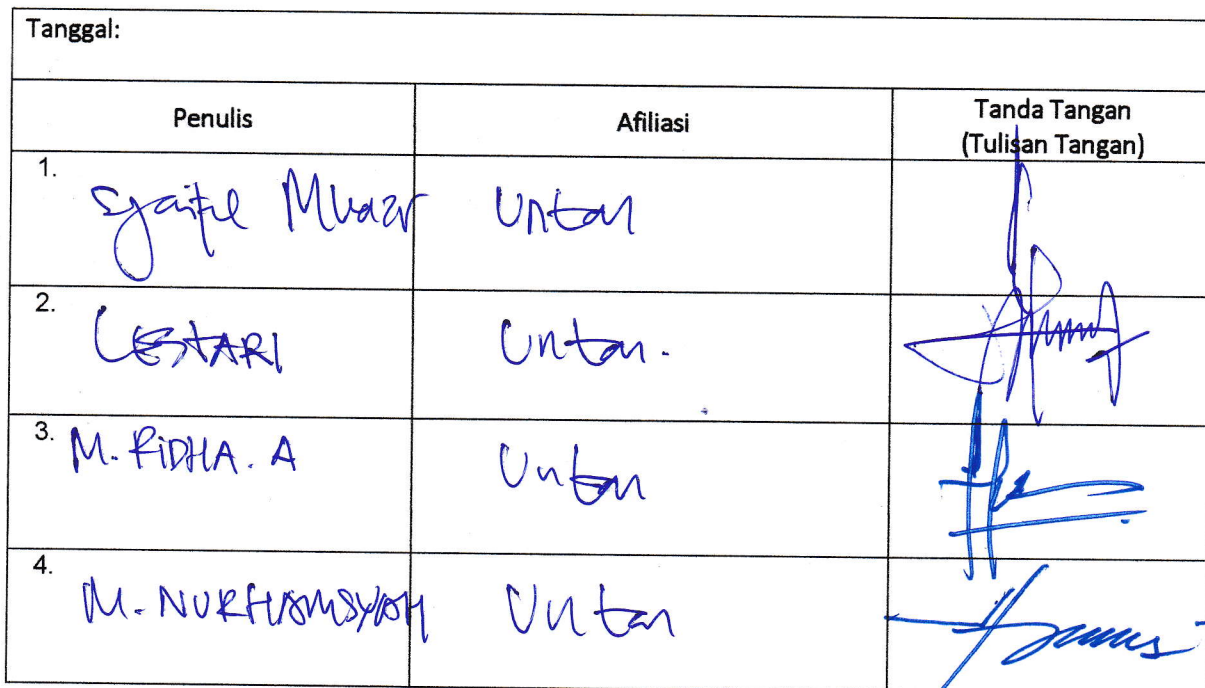 Tanggal:
Penulis Afiliasi Tanda Tangan
(Tulisan Tangan)
1. Syaiful Muazir Untan
2. LESTARI Untan.
3. M. RiDHA. A Untan
4. M. NURHAMSYAH Untan